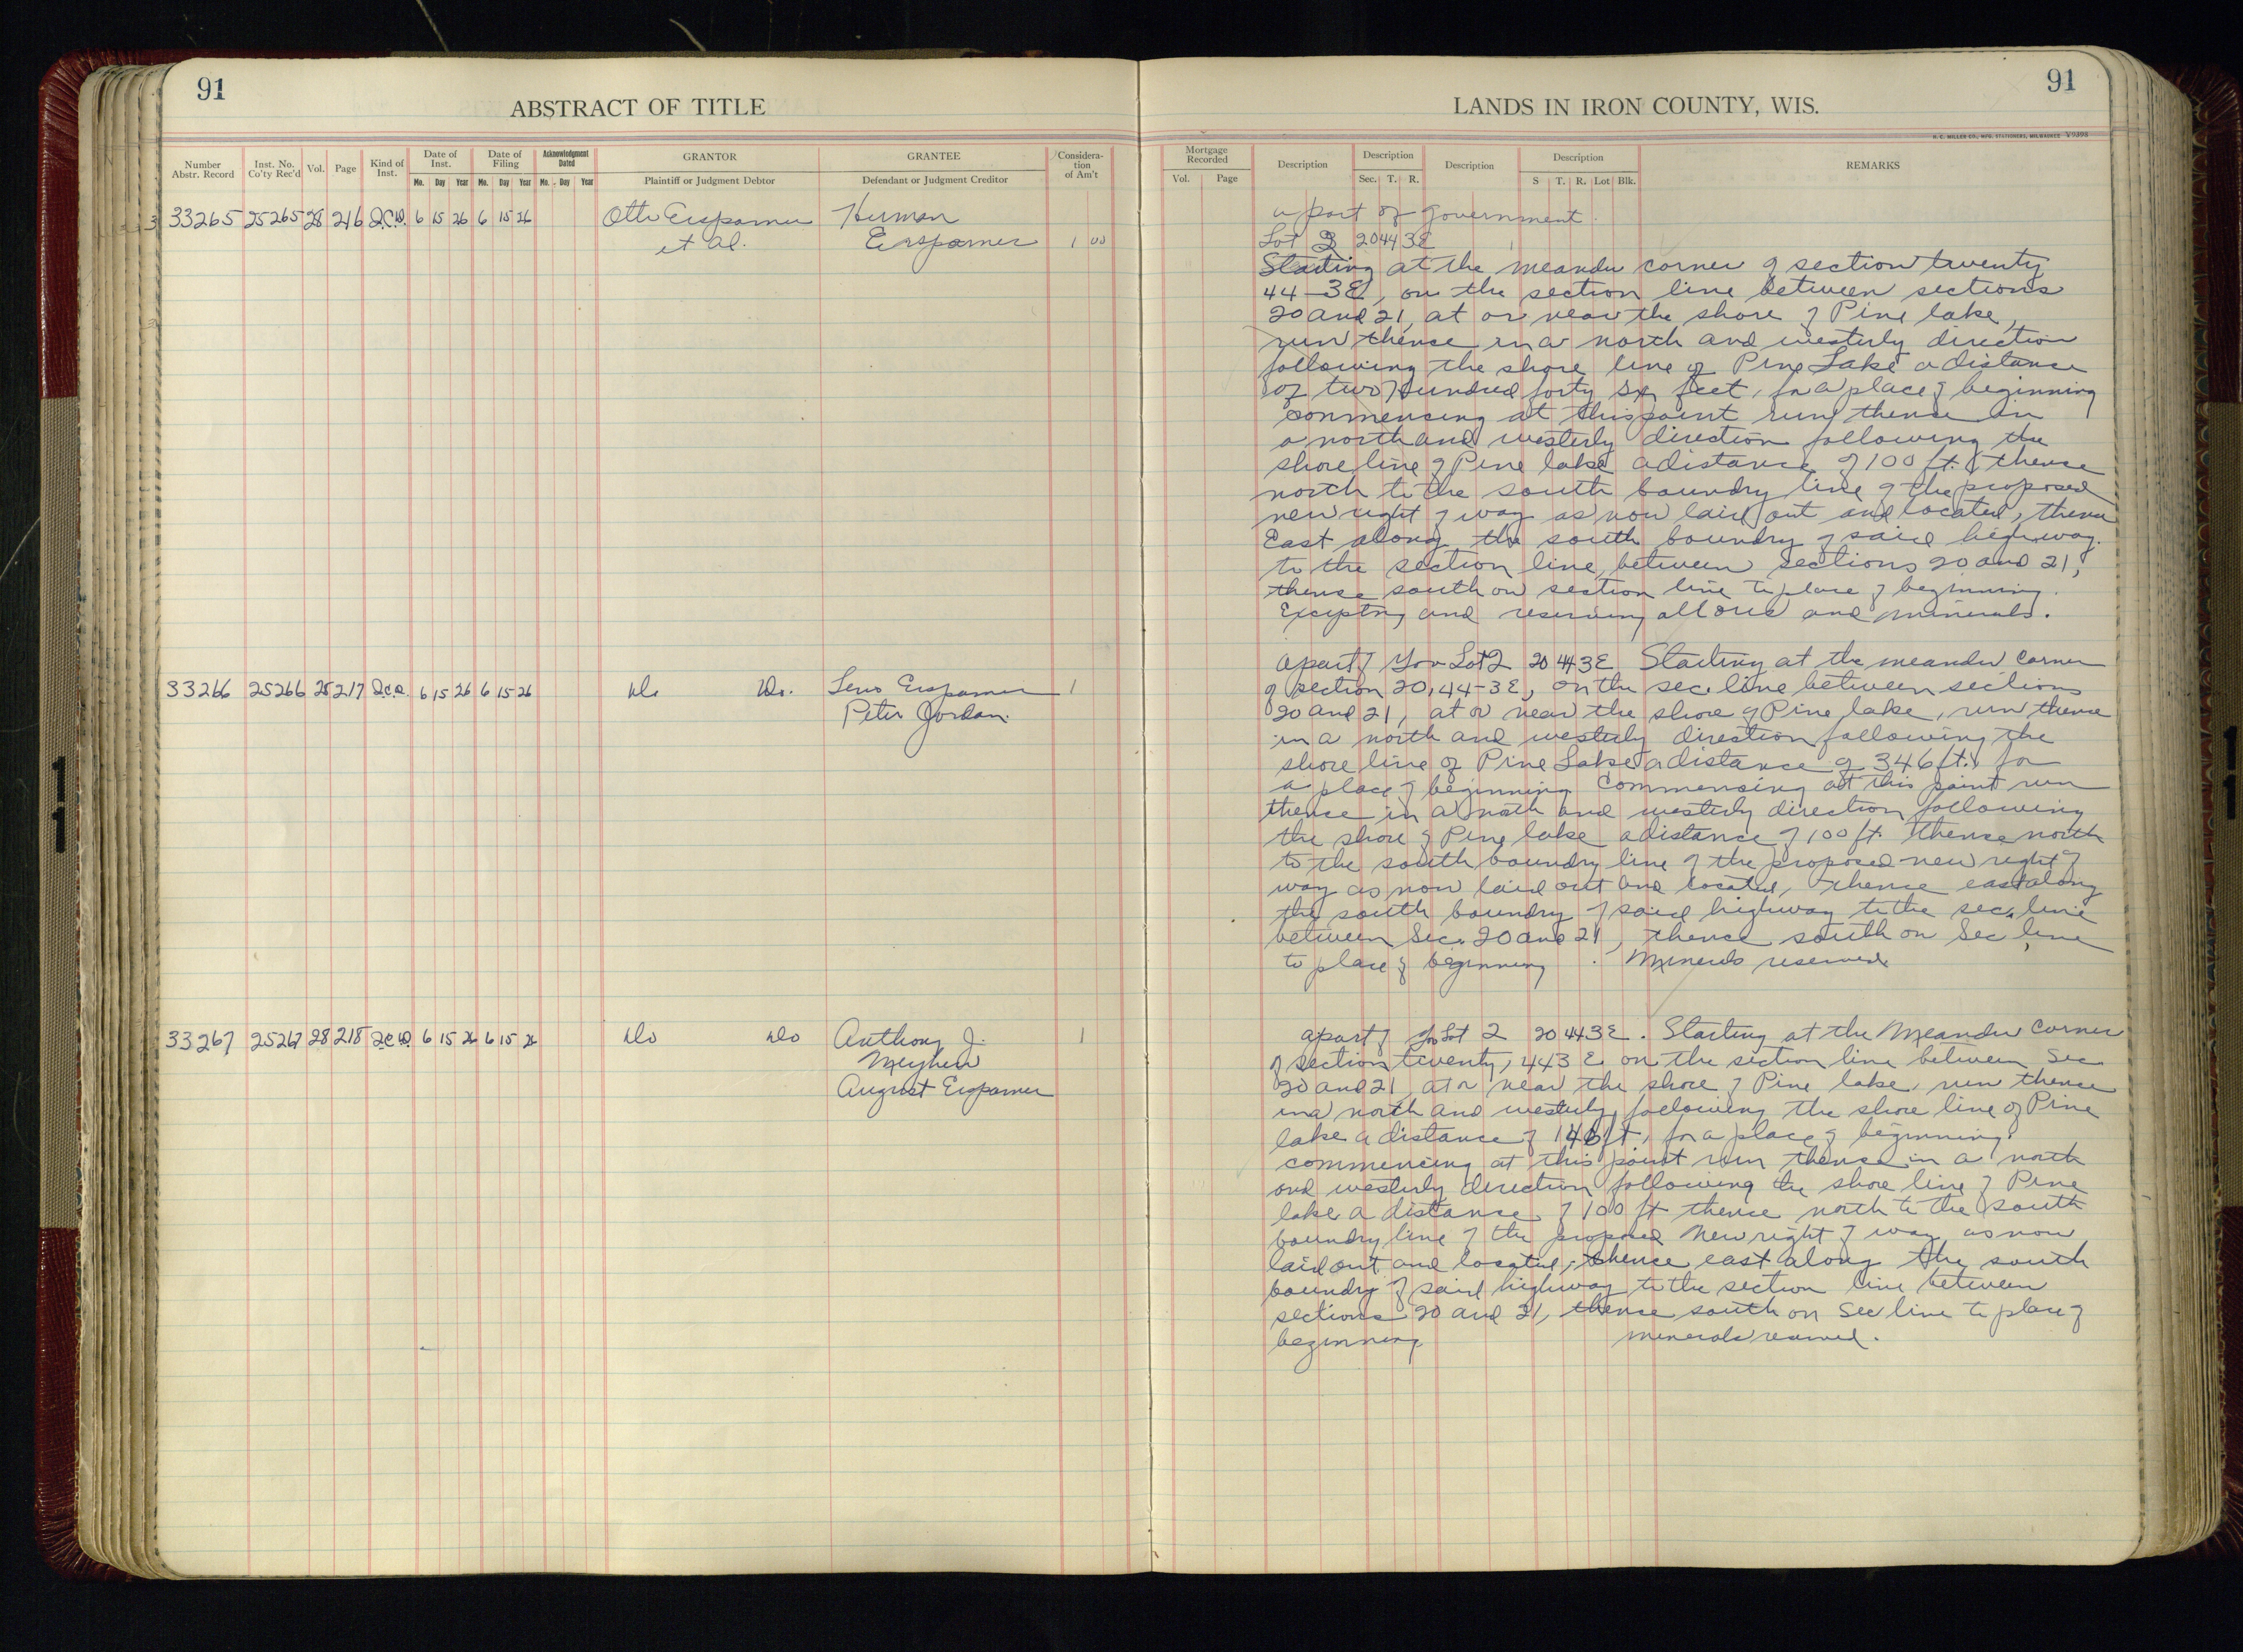 91
ABSTRACT OF TITLE
Number Abstr. Record
Inst. No. Co'ty Rec'd
Vol.
Page
Kind of Inst.
Date of Inst.
Mo. Day Year
Date of Filing
Mo. Day Year
Acknowledgment Dated
Mo. Day Year
GRANTOR
Plaintiff or Judgment Debtor
GRANTEE
Defendant or Judgment Creditor
Consideration of Am't
33265 25265 28 216 Q.C.D. 6 15 26 6 15 26 Otto Erspamer Herman
et al. Erspamer 1 00
33266 25266 28 217 Q.C.D. 6 15 26 6 15 26 Do Do. Erspamer 1
Peter Jordan.
33267 25267 28 218 Q.C.D. 6 15 26 6 15 26 Do Do Anthony J. 1
August Erspamer
91
LANDS IN IRON COUNTY, WIS.
H. C. MILLER CO., MFG. STATIONERS, MILWAUKEE V9398
Mortgage Recorded
Vol. Page
Description
Description
Sec. T. R.
Description
Description
S T. R. Lot Blk.
REMARKS
a part of government
Lot 2 20 44 3E
Starting at the meander corner of section twenty
44-3E, on the section line between sections
20 and 21, at or near the shore of Pine lake,
run thence in a north and westerly direction
following the shore line of Pine Lake a distance
of two Hundred forty six feet, for a place of beginning
commencing at this point run thence in
a north and westerly direction following the
shore line of Pine lake a distance of 100 ft. thence
north to the south boundry line of the proposed
new right of way as now laid out and located, thence
East along the south boundry of said highway.
to the section line, between sections 20 and 21,
thence south on section line to place of beginning.
Excepting and reserving all ores and minerals.
a part of Gov Lot 2 20 44 3E Starting at the meander corner
of section 20, 44-3E, on the sec. line between sections
20 and 21, at or near the shore of Pine lake, run thence
in a north and westerly direction following the
shore line of Pine Lake a distance of 346 ft. for
a place of beginning Commencing at this point run
thence in a north and westerly direction following
the shore of Pine lake a distance of 100 ft. thence north
to the south boundry line of the proposed new right of
way as now laid out and located, thence east along
the south boundry of said highway to the sec. line
between Sec. 20 and 21, thence south on Sec line
to place of beginning. Minerals reserved
a part of Gov Lot 2 20 44 3E. Starting at the Meander Corner
of section twenty, 44 3 E on the section line between Sec
20 and 21 at or near the shore of Pine lake, run thence
in a north and westerly, following the shore line of Pine
lake a distance of 146 ft., for a place of beginning.
commencing at this point run thence in a north
and westerly direction following the shore line of Pine
lake a distance of 100 ft thence north to the south
boundry line of the proposed New right of way as now
laid out and located, thence east along the south
boundry of said highway to the section line between
sections 20 and 21, thence south on Sec line to place of
beginning minerals reserved.